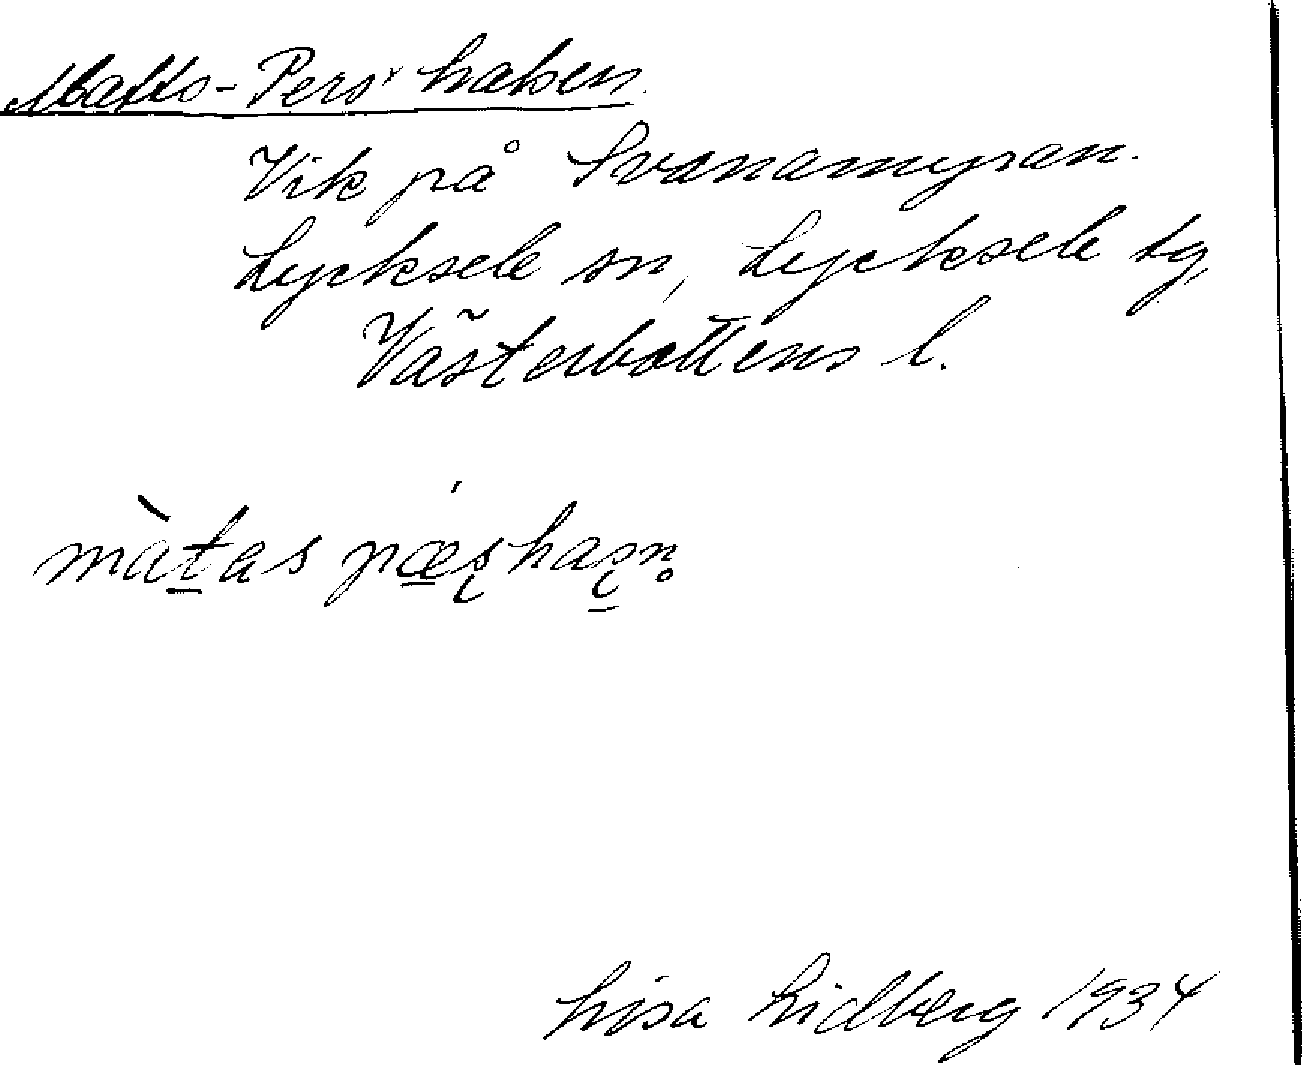 Matts-Pers' haken.
Vik på Svanamyran.
Lycksele sn, Lycksele tg,
Västerbottens l.
Lisa Lidberg 1934